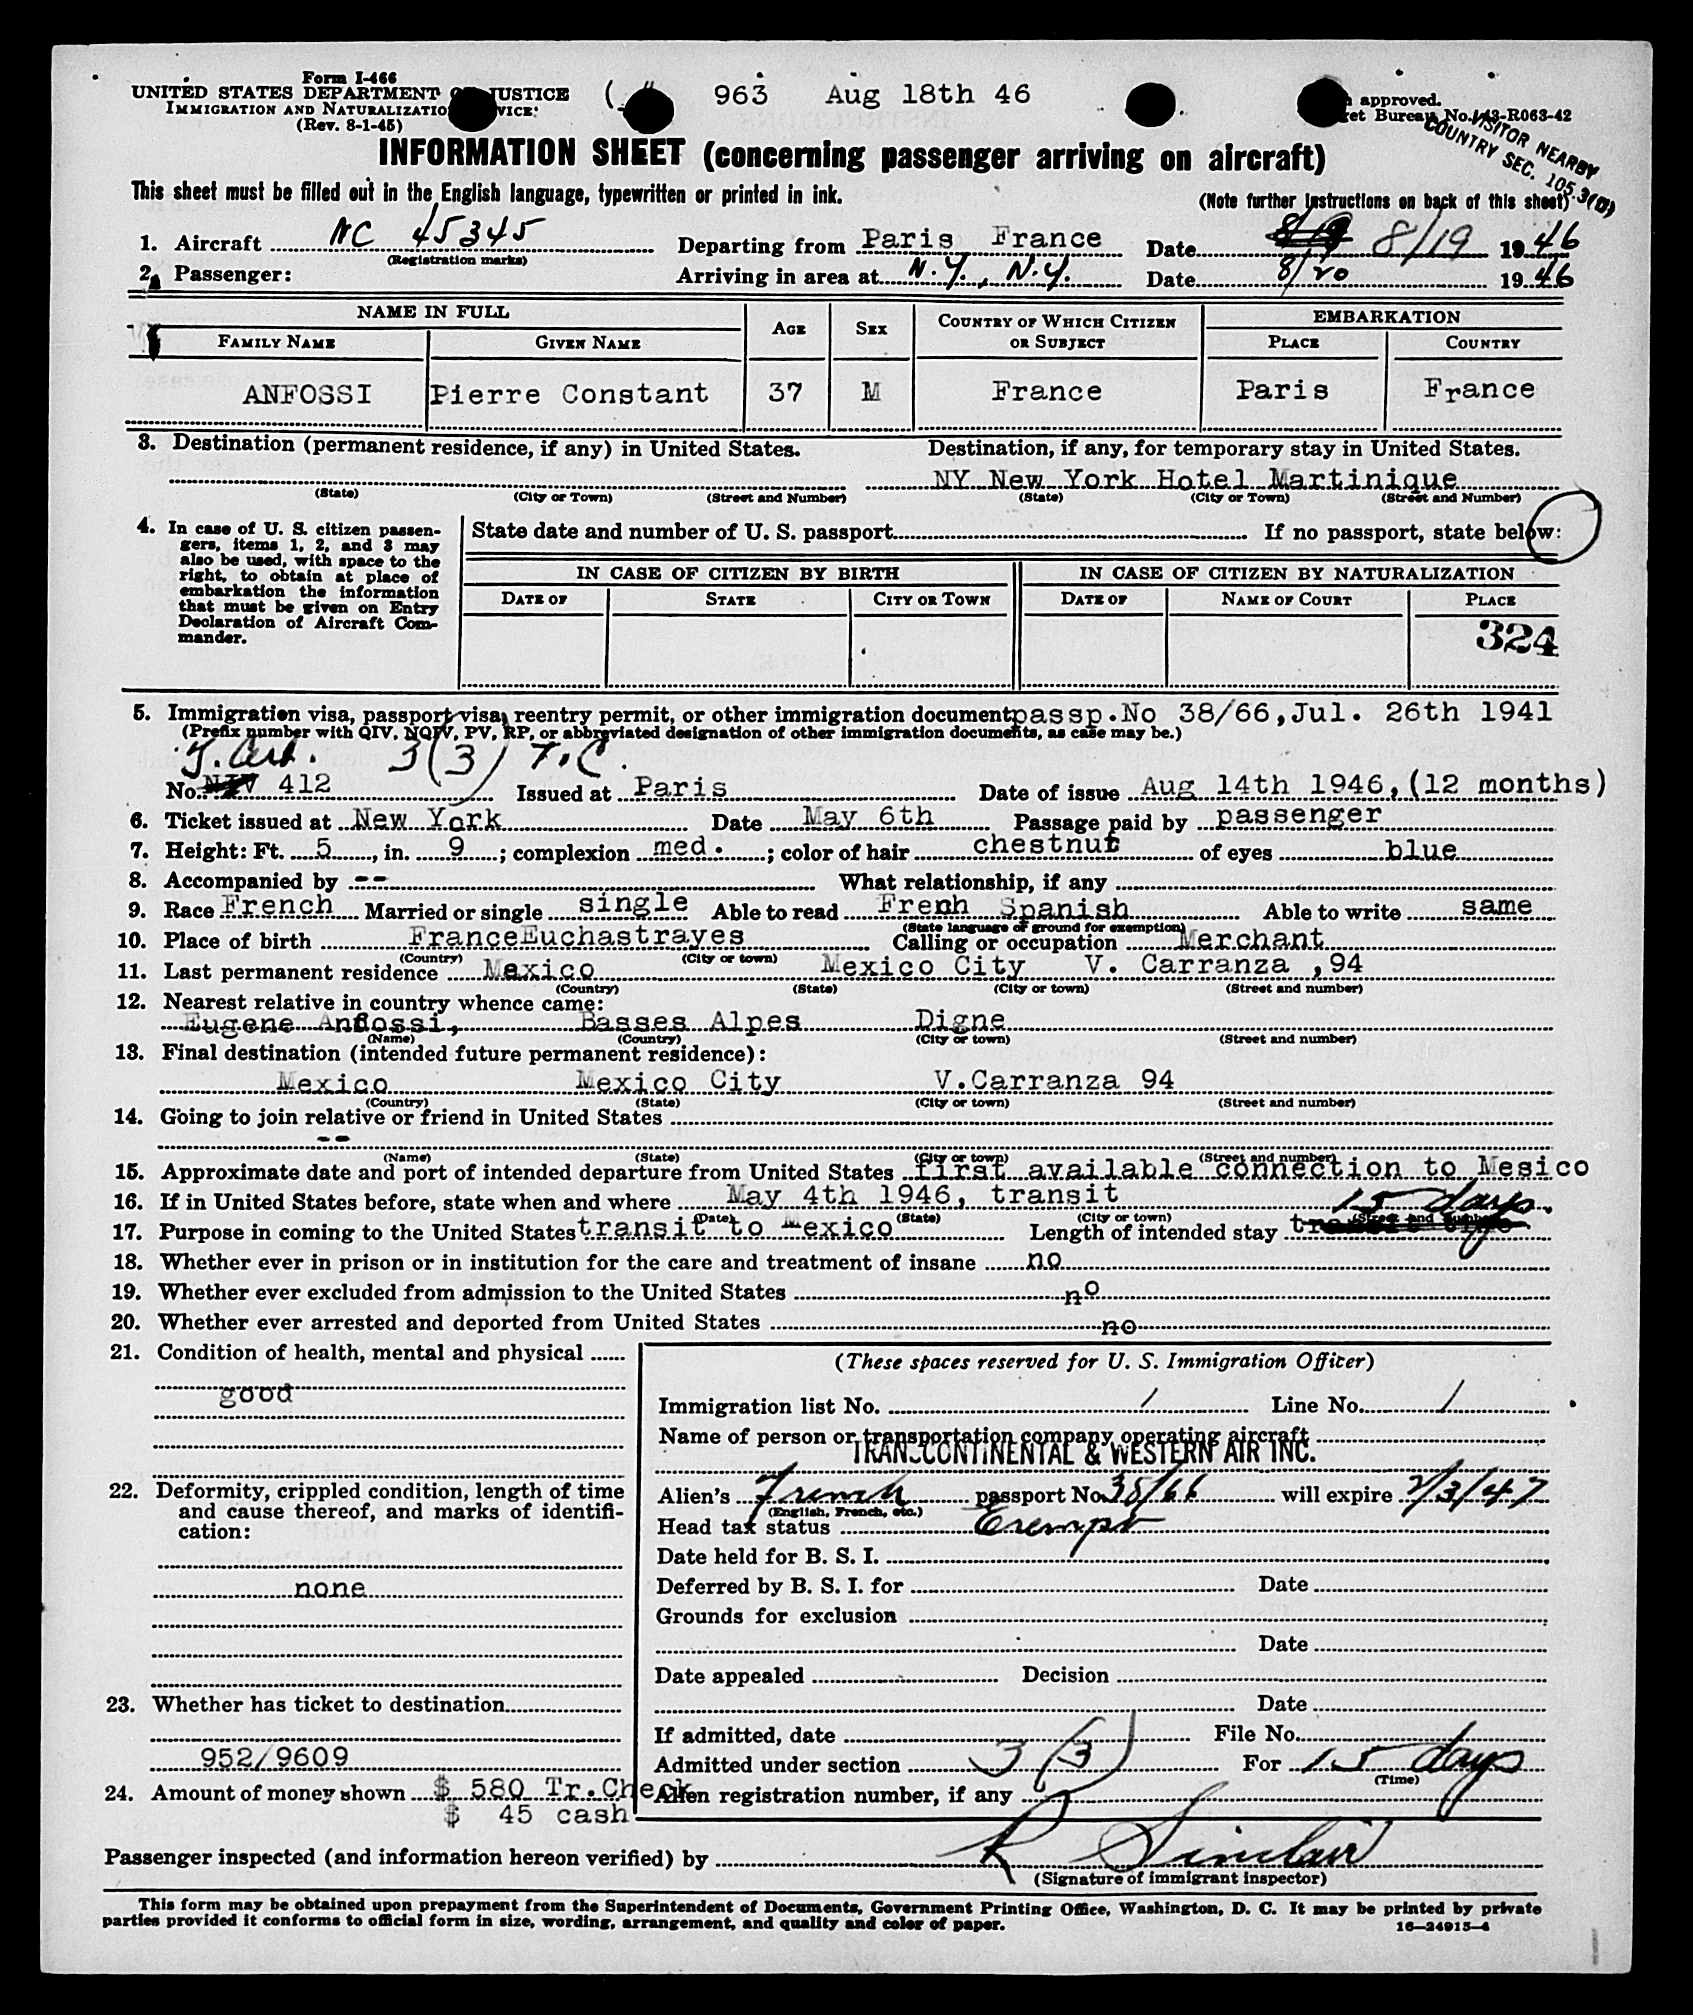 Form I-466
UNITED STATES DEPARTMENT OF JUSTICE
963 Aug 18th 46
approved.
IMMIGRATION AND NATURALIZATION SERVICE
Budget Bureau No. 43-R063-42
(Rev. 8-1-45)
VISITOR NEARBY
COUNTRY SEC. 105.3(a)
INFORMATION SHEET (concerning passenger arriving on aircraft)
This sheet must be filled out in the English language, typewritten or printed in ink.
(Note further instructions on back of this sheet)
1. Aircraft NC 45345 Departing from Paris France Date 8/19 1946
(Registration marks)
2. Passenger: Arriving in area at N.Y., N.Y. Date 8/20 1946
NAME IN FULL AGE SEX COUNTRY OF WHICH CITIZEN OR SUBJECT EMBARKATION
FAMILY NAME GIVEN NAME PLACE COUNTRY
ANFOSSI Pierre Constant 37 M France Paris France
3. Destination (permanent residence, if any) in United States. Destination, if any, for temporary stay in United States.
NY New York Hotel Martinique
(State) (City or Town) (Street and Number) (State) (City or Town) (Street and Number)
4. In case of U. S. citizen passen-
gers, items 1, 2, and 3 may
also be used, with space to the
right, to obtain at place of
embarkation the information
that must be given on Entry
Declaration of Aircraft Com-
mander.
State date and number of U. S. passport If no passport, state below:
IN CASE OF CITIZEN BY BIRTH IN CASE OF CITIZEN BY NATURALIZATION
DATE OF STATE CITY OR TOWN DATE OF NAME OF COURT PLACE
324
5. Immigration visa, passport visa, reentry permit, or other immigration document passp.No 38/66, Jul. 26th 1941
(Prefix number with QIV, NQIV, PV, RP, or abbreviated designation of other immigration documents, as case may be.)
3(3) T.C.
No. NIV 412 Issued at Paris Date of issue Aug 14th 1946,(12 months)
6. Ticket issued at New York Date May 6th Passage paid by passenger
7. Height: Ft. 5, in. 9; complexion med.; color of hair chestnut of eyes blue
8. Accompanied by -- What relationship, if any
9. Race French Married or single single Able to read Frenh Spanish Able to write same
(State language or ground for exemption)
10. Place of birth France Euchastrayes Calling or occupation Merchant
(Country) (City or town)
11. Last permanent residence Mexico Mexico City V. Carranza ,94
(Country) (State) (City or town) (Street and number)
12. Nearest relative in country whence came:
Eugene Anfossi, Basses Alpes Digne
(Name) (Country) (City or town) (Street and number)
13. Final destination (intended future permanent residence):
Mexico Mexico City V.Carranza 94
(Country) (State) (City or town) (Street and number)
14. Going to join relative or friend in United States
--
(Name) (State) (City or town) (Street and number)
15. Approximate date and port of intended departure from United States first available connection to Mesico
16. If in United States before, state when and where May 4th 1946, transit
(Date) (State) (City or town) (Street and Number)
15 days.
17. Purpose in coming to the United States transit to Mexico Length of intended stay
18. Whether ever in prison or in institution for the care and treatment of insane no
19. Whether ever excluded from admission to the United States no
20. Whether ever arrested and deported from United States no
21. Condition of health, mental and physical
good
22. Deformity, crippled condition, length of time
and cause thereof, and marks of identifi-
cation:
none
23. Whether has ticket to destination
952/9609
24. Amount of money shown $ 580 Tr.Check
$ 45 cash
(These spaces reserved for U. S. Immigration Officer)
Immigration list No. 1 Line No. 1
Name of person or transportation company operating aircraft
TRANSCONTINENTAL & WESTERN AIR INC.
Alien's French passport No. 38/66 will expire 2/3/47
(English, French, etc.)
Head tax status Exempt
Date held for B. S. I.
Deferred by B. S. I. for Date
Grounds for exclusion
Date
Date appealed Decision
Date
If admitted, date File No.
Admitted under section 3(3) For 15 days
(Time)
Alien registration number, if any
Passenger inspected (and information hereon verified) by R Sinclair
(Signature of immigrant inspector)
This form may be obtained upon prepayment from the Superintendent of Documents, Government Printing Office, Washington, D. C. It may be printed by private
parties provided it conforms to official form in size, wording, arrangement, and quality and color of paper.
16—24915-4